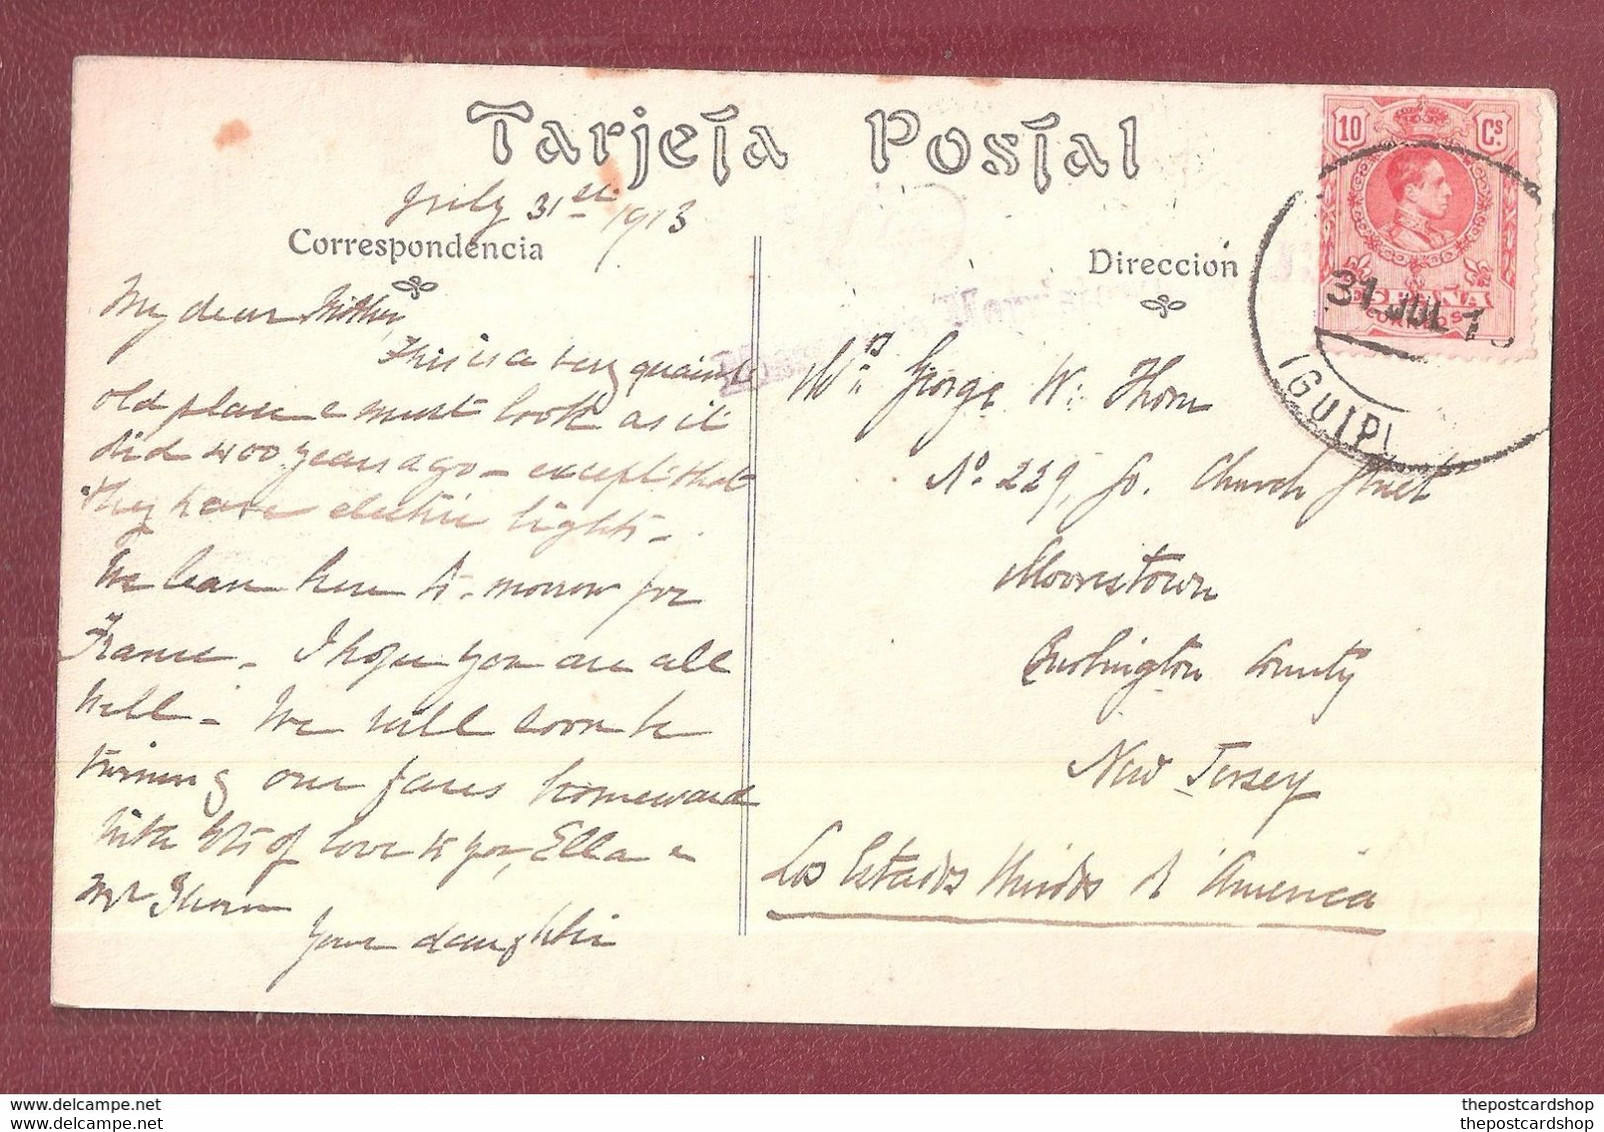 Tarjeta Postal
July 31st 1913
Correspondencia
My dear Mother,
This is a very quaint
old place & must look as it
did 400 years ago - except that
they have electric lights -
We leave here to-morrow for
France - I hope you are all
well - We will soon be
turning our faces homeward
with lots of love to you, Ella &
Mr Thorn
Your daughter
Dirección
George W. Thorn
No. 229, So. Church Street
Moorestown
Burlington County
New Jersey
Los Estados Unidos d' America
10 Cs
ESPAÑA
CORREOS
31 JUL 1
(GUIP)
www.delcampe.net
thepostcardshop
thepostcardshop